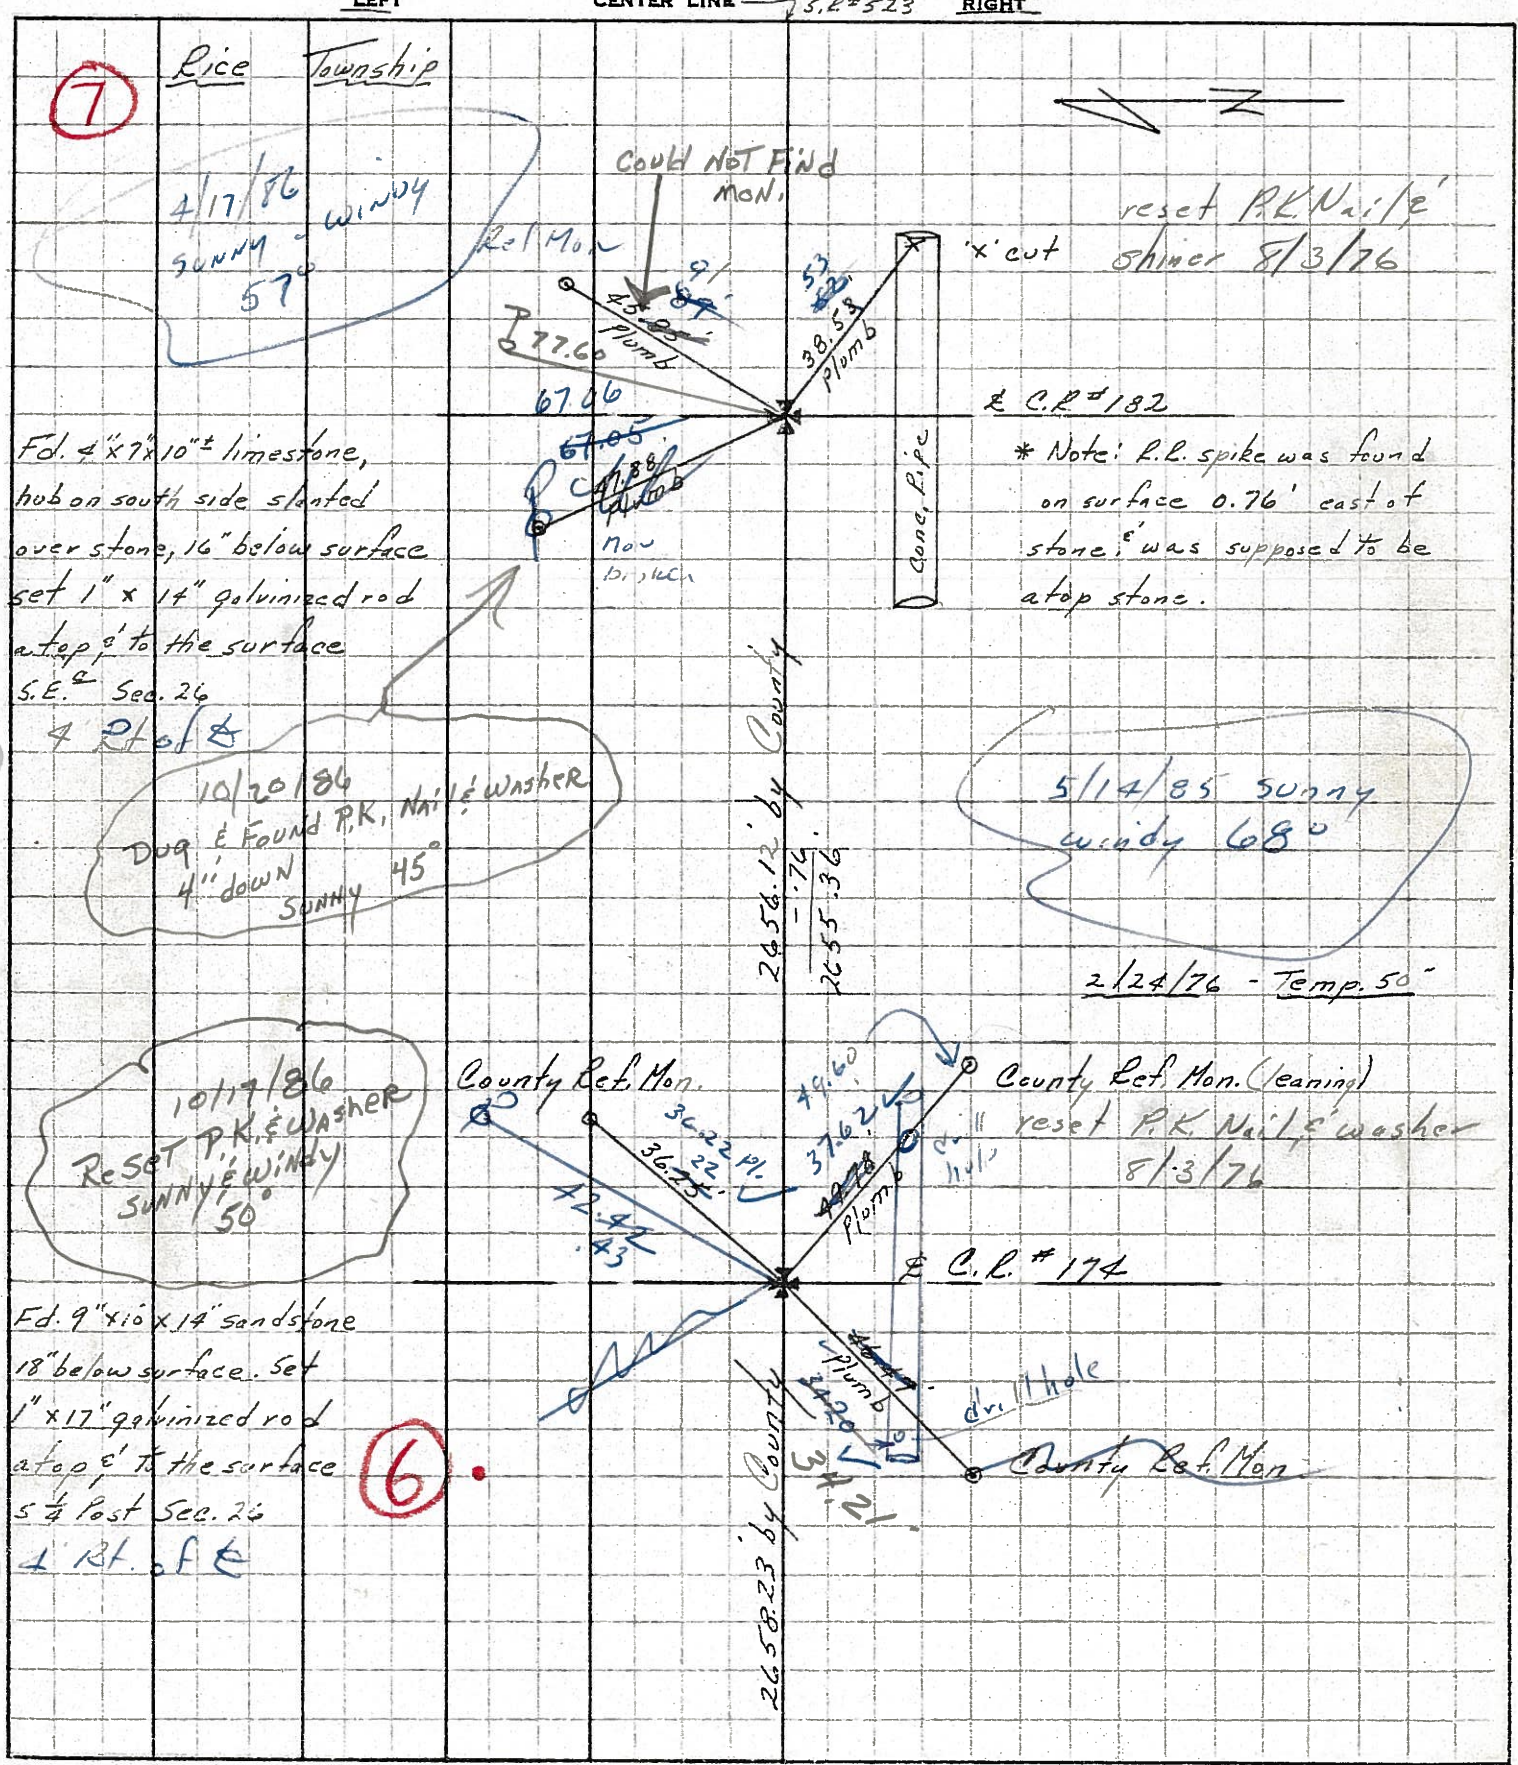 LEFT
CENTER LINE
S.R #523
RIGHT
7
Rice Township
4/17/86
SUNNY - WINDY
57°
COULD NOT FIND
MON.
Ref Mon
45.85'
91
87
plumb
77.60
53
38.53
plumb
'x' cut
reset P.K. Nail &
shiner 8/3/76
67.06
67.05
47.88
plumb
broken
Conc. Pipe
℄ C.R #182
* Note: R.R. spike was found
on surface 0.76' east of
stone & was supposed to be
atop stone.
Fd. 4"x7"x10"± limestone,
hub on south side slanted
over stone, 16" below surface
set 1" x 14" galvinized rod
atop & to the surface
S.E. c Sec. 26
4 Rt of ℄
10/20/86
Dug & Found P.K. Nail & Washer
4" down
SUNNY 45°
2656.12' by County
-.76
2655.36'
5/14/85 Sunny
windy 68°
2/24/76 - Temp. 50°
10/17/86
Reset P.K. & Washer
SUNNY & Windy
50°
County Ref. Mon.
36.22 Pl.
22
36.25'
42.42
.43
49.60
37.62 ✓
plumb
drill
hole
County Ref. Mon. (leaning)
reset P.K. Nail & washer
8/3/76
℄ C.R. #174
Fd. 9"x10x14" sandstone
18" below surface. Set
1"x17" galvinized rod
atop & to the surface
S ¼ Post Sec. 26
4 Rt. of ℄
6
plumb
34.20 ✓
34.21
drill hole
County Ref. Mon
2658.23' by County